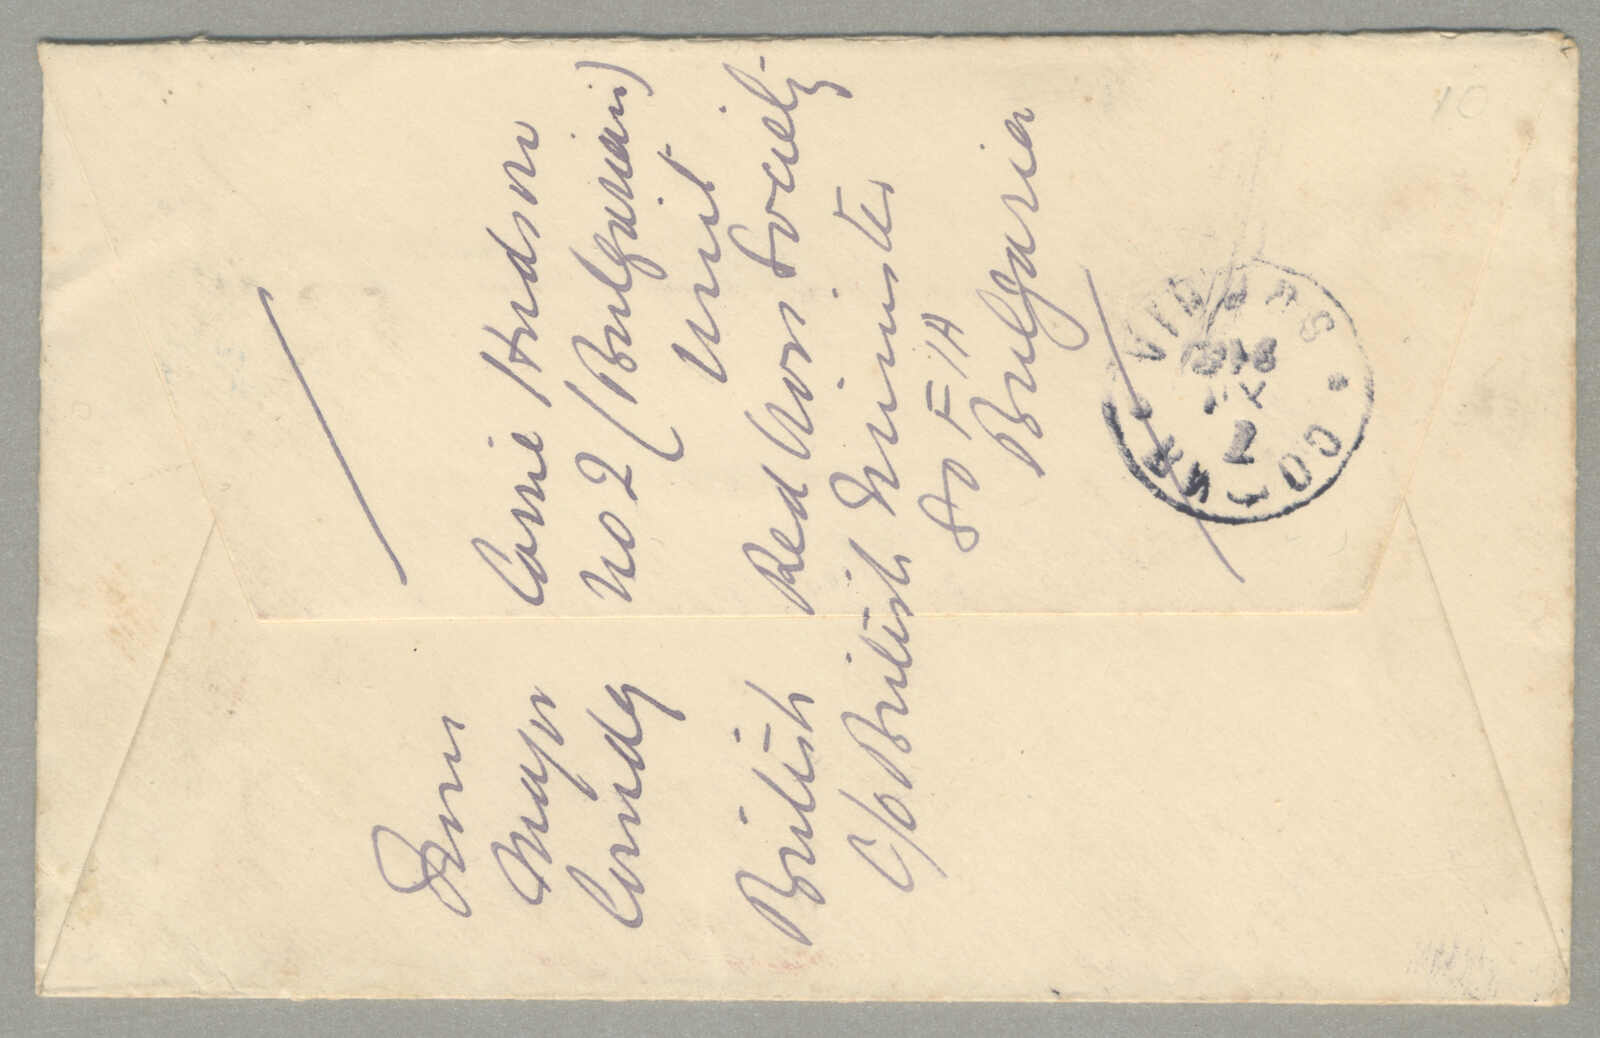 From
Major Corrie Hudson
Comdg No 2 (Bulgarian)
Unit
British Red Cross Society
C/o British Minister
SOFIA
Bulgaria
10